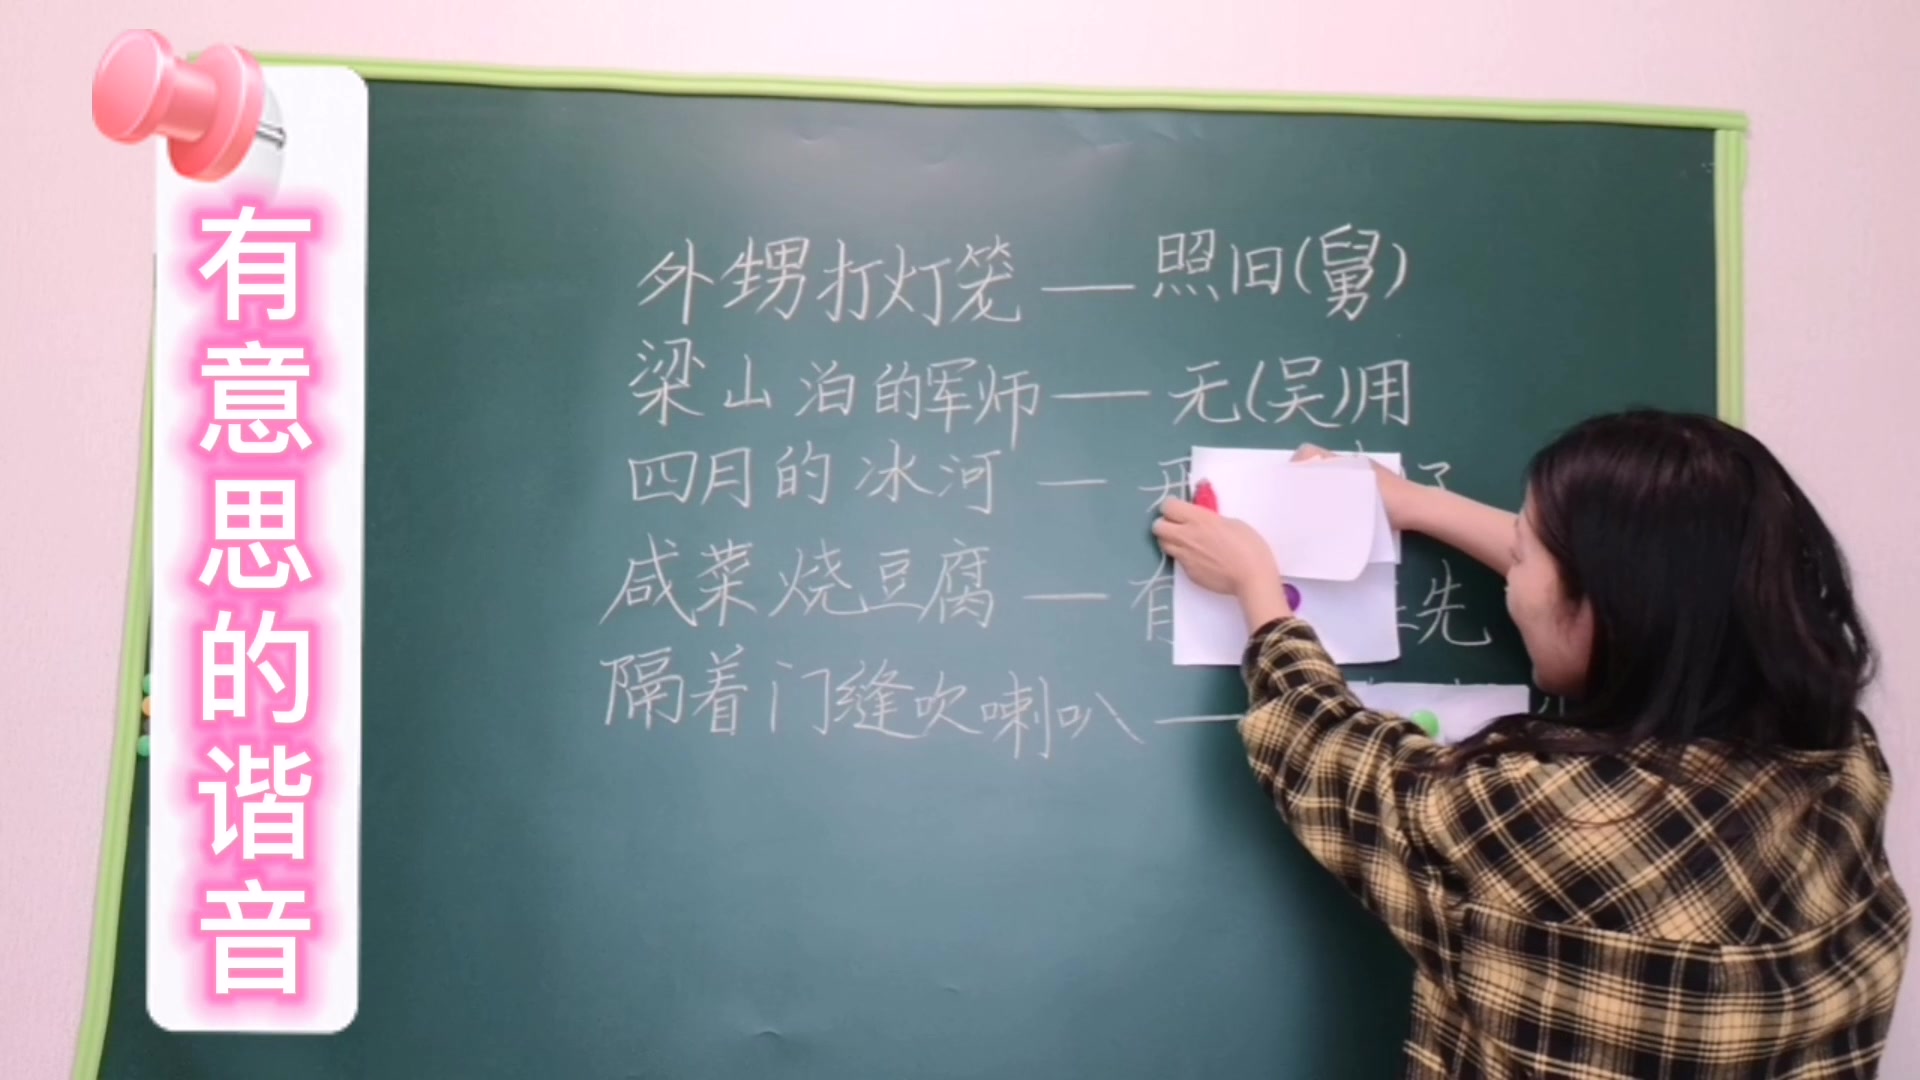 有意思的谐音
外甥打灯笼——照旧(舅)
梁山泊的军师——无(吴)用
四月的冰河—开
咸菜烧豆腐—有 先
隔着门缝吹喇叭—